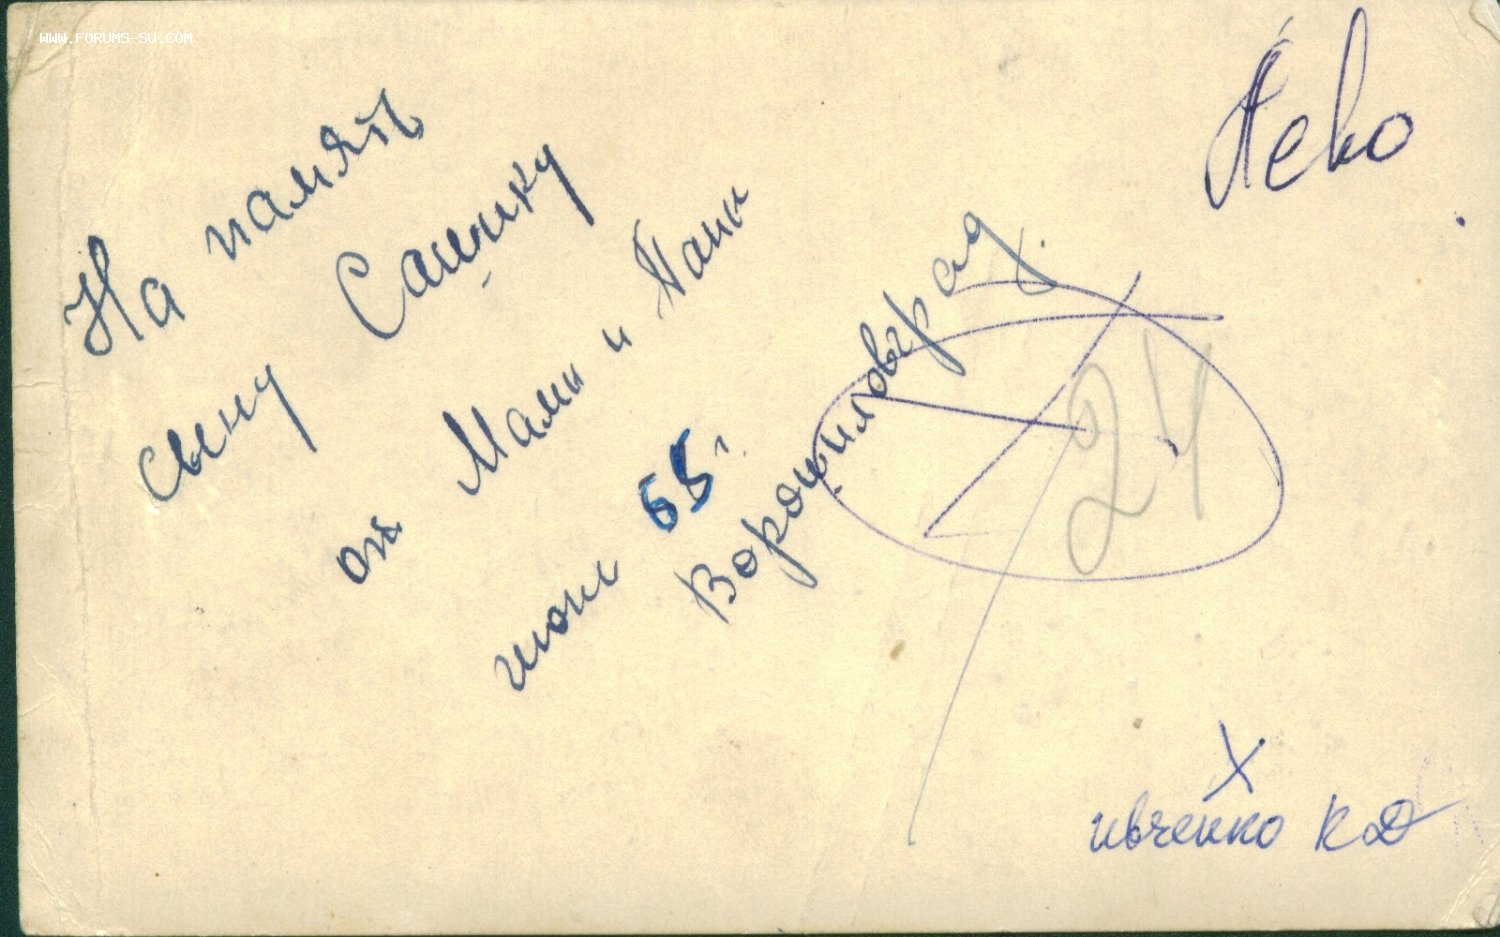 WWW.FORUMS-SU.COM
На память
сыну Сашику
от Мамы и Папы
июнь 65 г.
Ворошиловград.
Лево
24
Х
ивченко КД